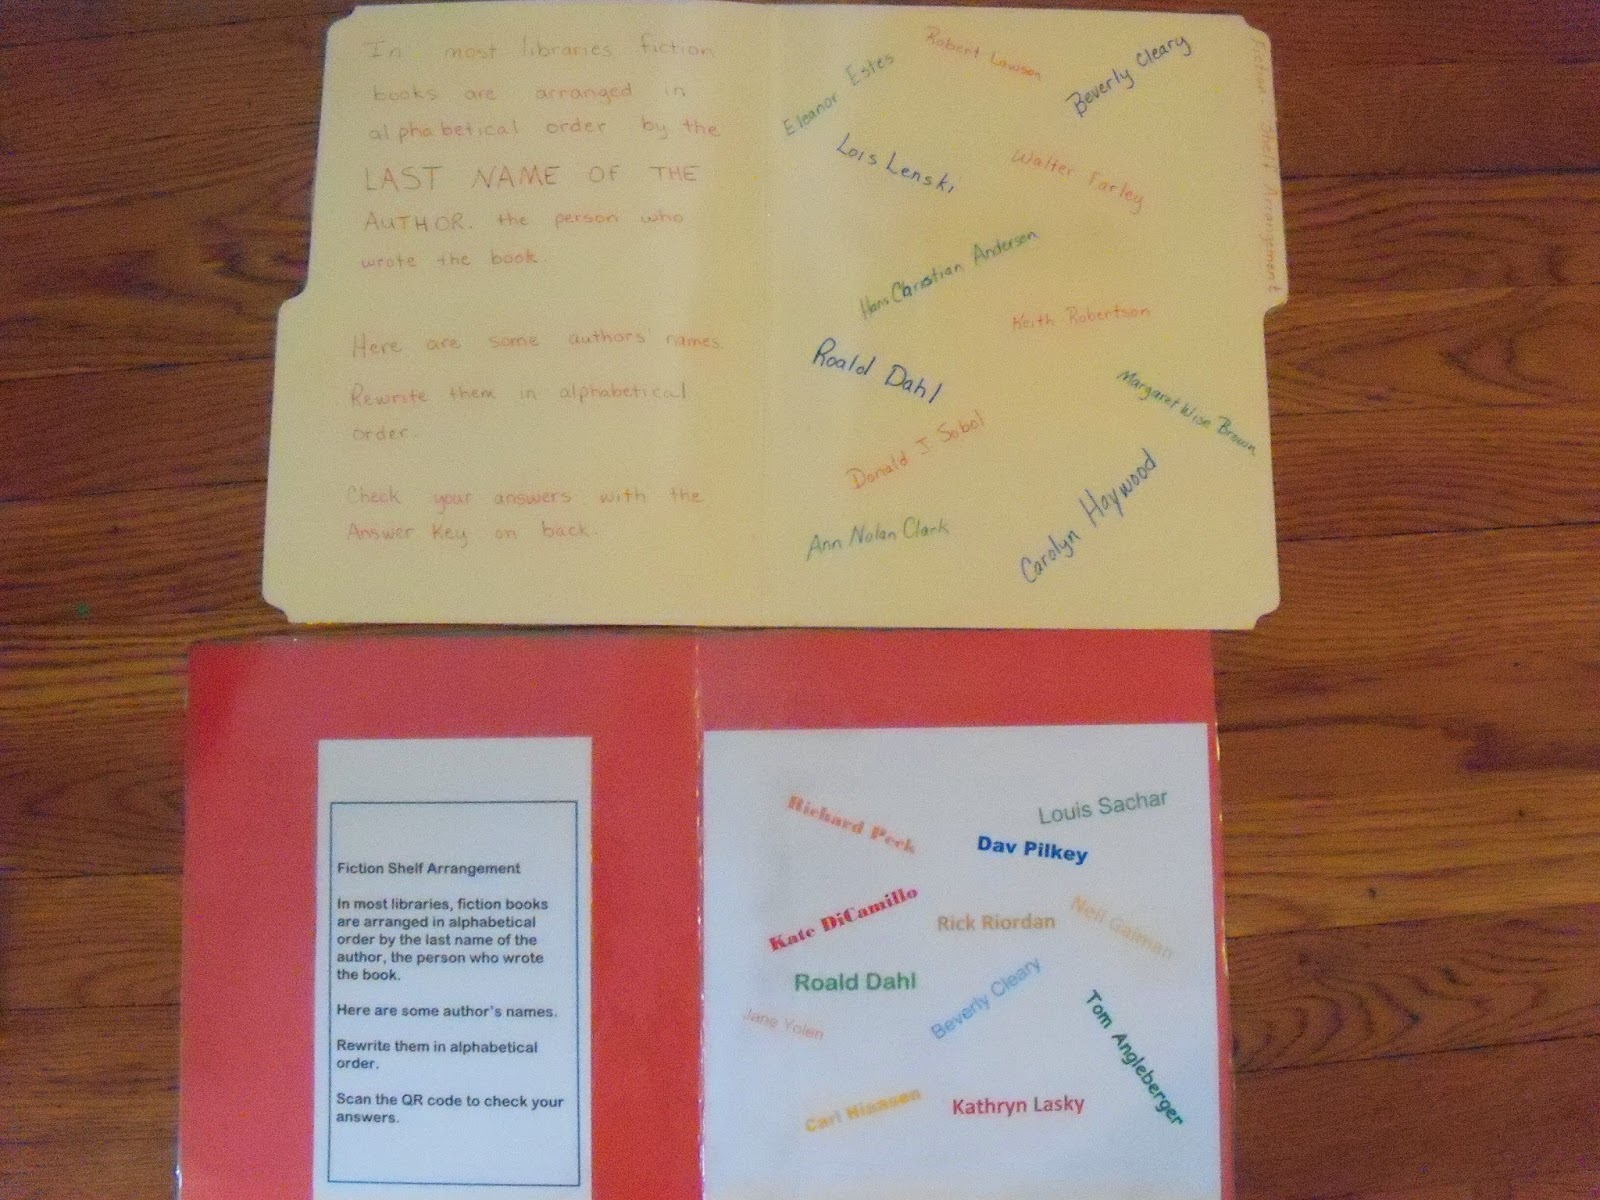 In most libraries fiction
books are arranged in
alphabetical order by the
LAST NAME OF THE
AUTHOR. the person who
wrote the book.
Here are some authors' names.
Rewrite them in alphabetical
order.
Check your answers with the
Answer Key on back.
Robert Lawson
Beverly Cleary
Eleanor Estes
Lois Lenski
Walter Farley
Hans Christian Andersen
Keith Robertson
Roald Dahl
Margaret Wise Brown
Donald J. Sobol
Carolyn Haywood
Ann Nolan Clark
Fiction Shelf Arrangement
Fiction Shelf Arrangement
In most libraries, fiction books
are arranged in alphabetical
order by the last name of the
author, the person who wrote
the book.
Here are some author's names.
Rewrite them in alphabetical
order.
Scan the QR code to check your
answers.
Richard Peck
Louis Sachar
Dav Pilkey
Kate DiCamillo
Rick Riordan
Neil Gaiman
Roald Dahl
Beverly Cleary
Jane Yolen
Tom Angleberger
Carl Hiaasen
Kathryn Lasky